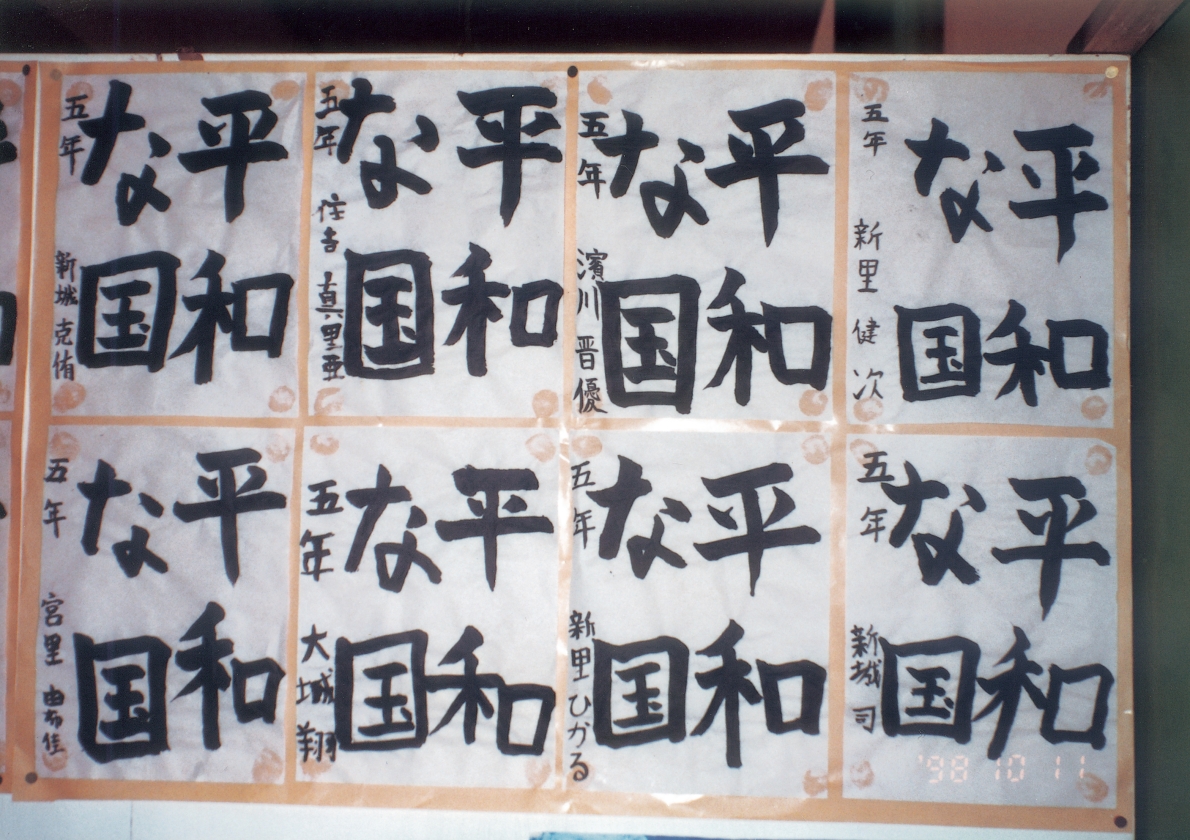 平和
な国
五年 新里 健次
平和
な国
五年 濱川 晋優
平和
な国
五年 住吉 真里亜
平和
な国
五年 新城 克侑
平和
な国
五年 新城 司
平和
な国
五年 新里 ひかる
平和
な国
五年 大城 翔
平和
な国
五年 宮里
'98 10 11